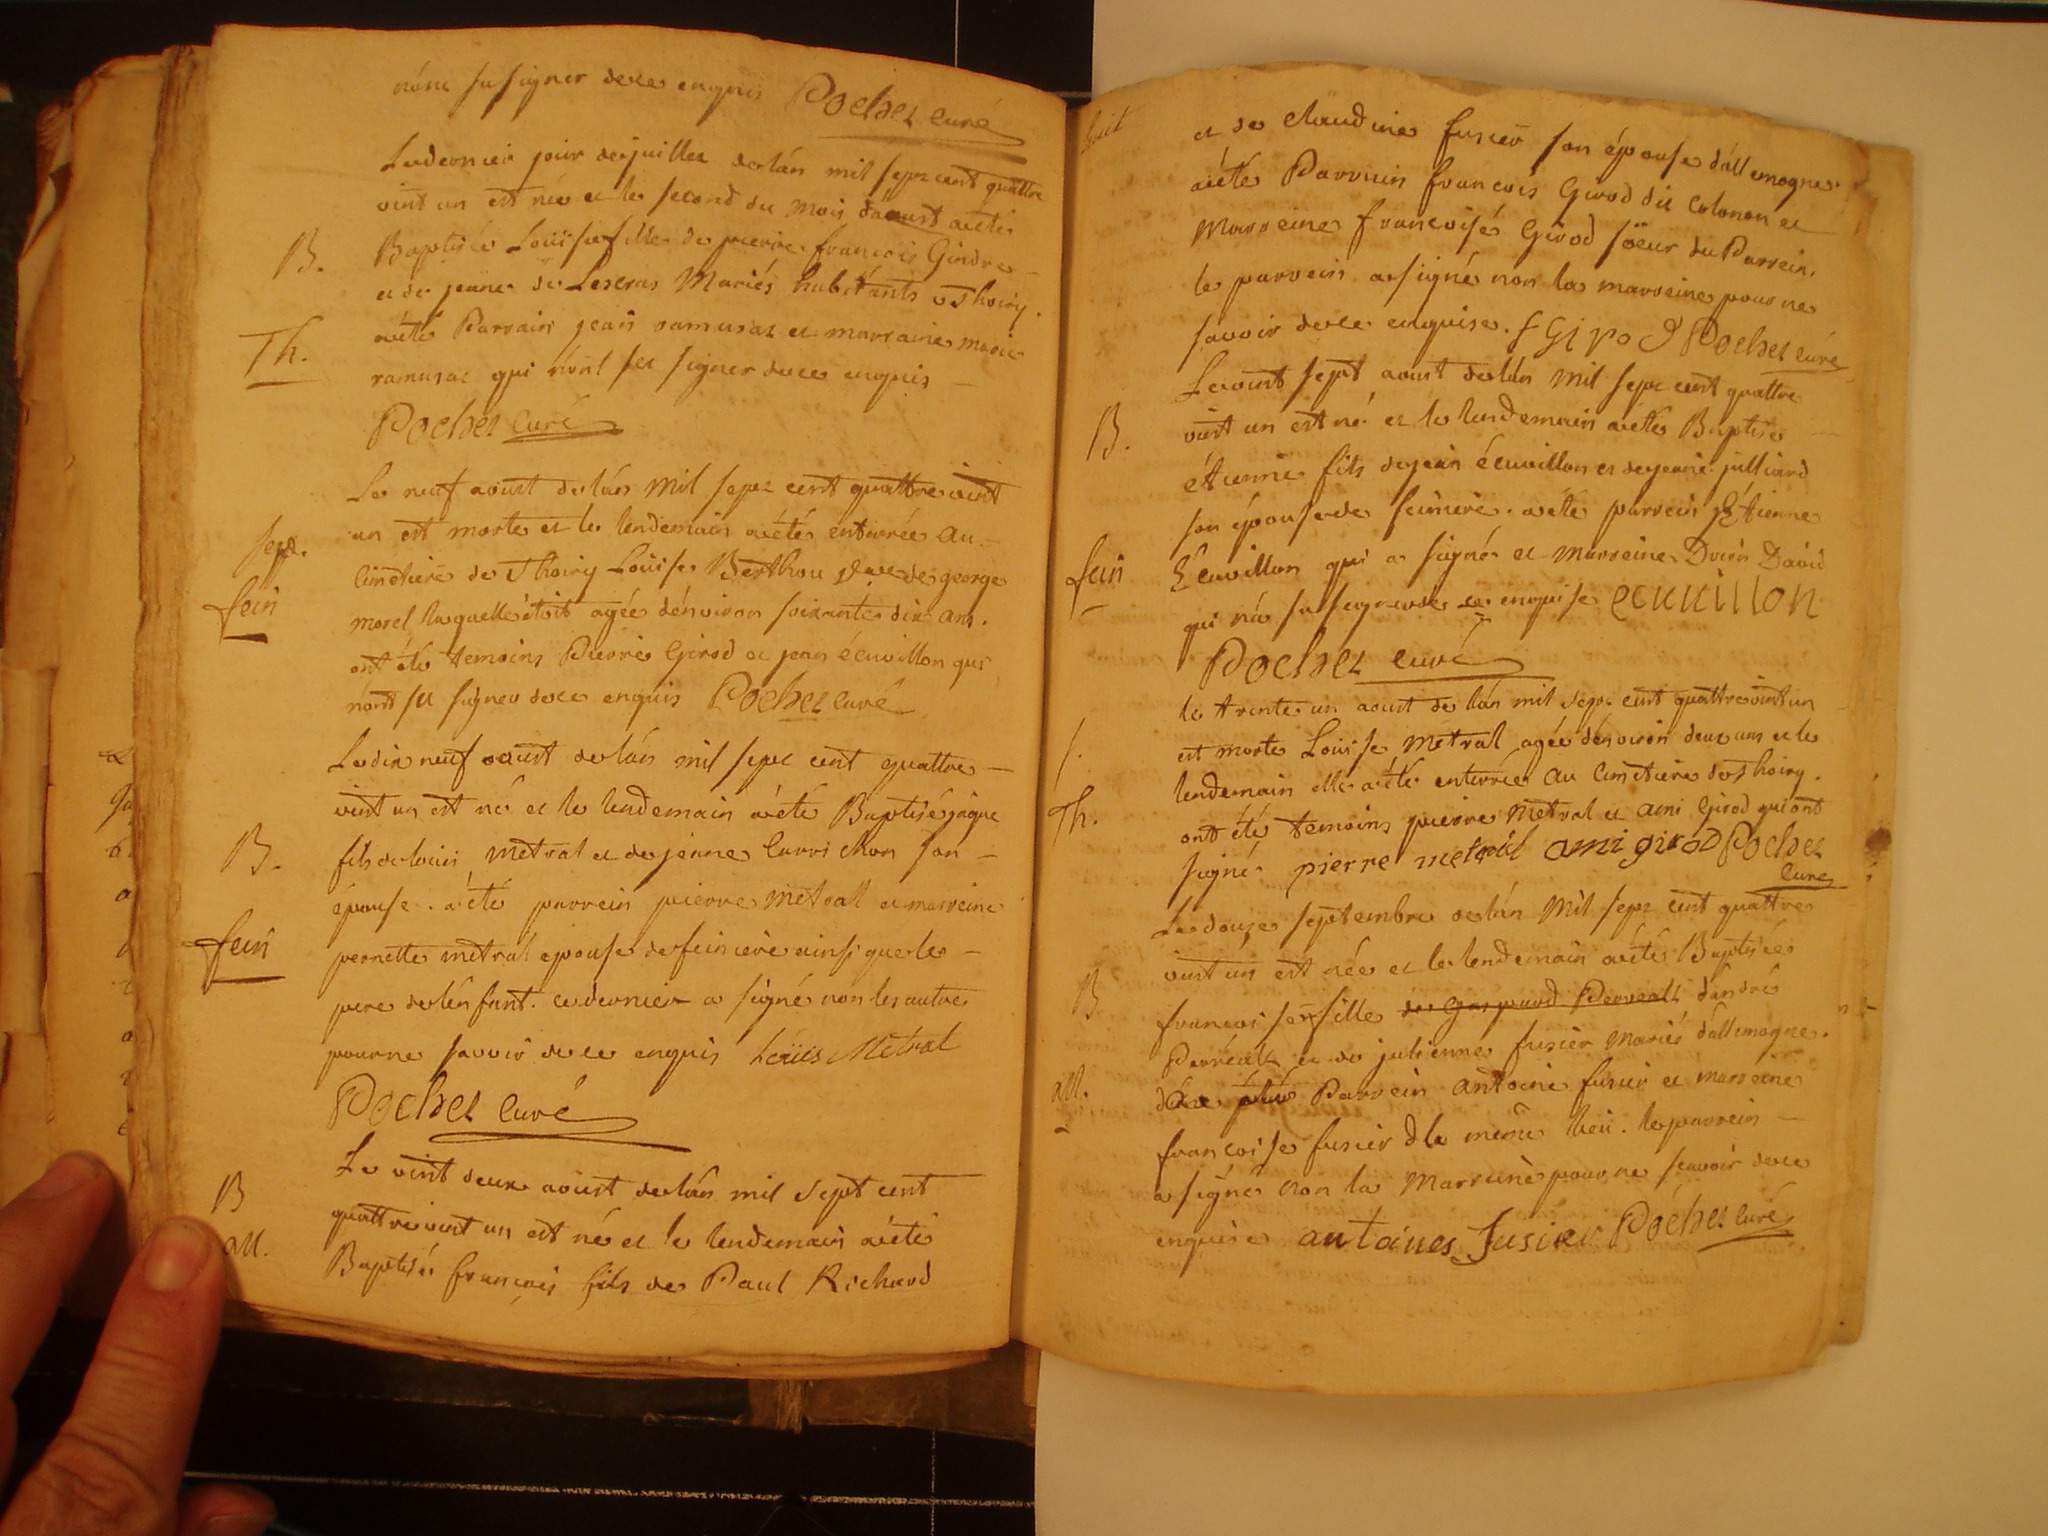 n'ont su signer de ce enquis Pochet curé
Le dernier jour de juillet de l'an mil sept cent quattre
vint un est née et le second du mois d'aoust a été
B. Baptisée Louise fille de pierre françois Gindre
et de jeanne de Lescras Mariés habitants a Thoiry.
Th. a été Parrain jean ramusat et marraine marie
ramusat qui n'ont su signer de ce enquis
Pochet curé
Le neuf aoust de l'an mil sept cent quattre vint
Sept. un est morte et le lendemain a été enterrée au
cimetiere de Thoiry Louise Berthou veuve de george
fein morel laquelle étoit agée d'environ soixante dix ans.
ont été temoins Pierre Girod et jean écuvillon qui
n'ont su signer de ce enquis Pochet curé
Le dix neuf aoust de l'an mil sept cent quattre
vint un est né et le lendemain a été Baptisé jâque
B. fils de louis metral et de jeanne Currichon son
épouse. a été parrein pierre metral et marreine
fein pernette metral epouse de feiniere ainsi que le
pere de l'enfant. ce dernier a signé non les autres
pour ne savoir de ce enquis Loüis Métral
Pochet curé
B Le vint deux aoust de l'an mil sept cent
all. quattre vint un est né et le lendemain a été
Baptisé françois fils de Paul Richard
et de Claudine fusier son épouse d'allemogne.
a été Parrein françois Girod dit Colonon et
Marreine françoise Girod sœur du Parrein.
le parrein a signé non la marreine pour ne
savoir de ce enquise. f Girod Pochet curé
Le vint sept aoust de l'an mil sept cent quattre
B. vint un est né et le lendemain a été Baptisé
étienne fils de jean écuvillon et de jeanne julliard
son épouse de feiniere. a été parrein Etienne
fein Ecuvillon qui a signé et Marreine David
qui n'a su signer de ce enquise ecuuillon
Pochet curé
le trente un aoust de l'an mil sept cent quattre vint un
f. est morte Louise metral agée d'environ deux ans et le
lendemain elle a été enterrée au cimetiere de Thoiry.
Th. ont été temoins pierre Metral et ami Girod qui ont
signé pierre metral ami girod Pochet
curé
Le douze septembre de l'an mil sept cent quattre
vint un est née et le lendemain a été Baptisée
B françoise fille de gaspard Perrealt d'andré
Perréalt et de julienne fusier mariés d'allemogne.
all. Parrein antoine fusier et marreine
françoise fusier de la même lieu. le parrein
a signé non la Marreine pour ne sçavoir de ce
enquise antoines Fusier Pochet curé